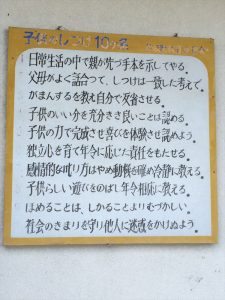 子供のしつけ10ヶ条
日常生活の中で親が先づ手本を示してやる。
父母がよく話合って、しつけは一致した考えで。
がまんするを教え自分で反省させる。
子供のいい分を充分きき良いことは認める。
子供の力で完成させ喜びを体験させ認めよう。
独立心を育て年令に応じた責任をもたせる。
感情的な叱り方はやめ動機を確め冷静に教える。
子供らしい遊びをのばし年令相応に教える。
ほめることは、しかることよりむづかしい。
社会のきまりを守り他人に迷惑をかけぬよう。